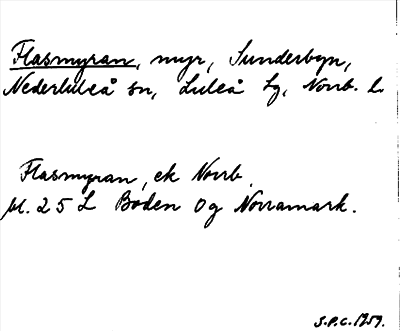 Flasmyran, myr, Sunderbyn,
Nederluleå sn, Luleå tg, Norrb. l.
Flasmyran, ek Norrb
bl. 25 L Boden og Norramark.
S.P.C. 1959.